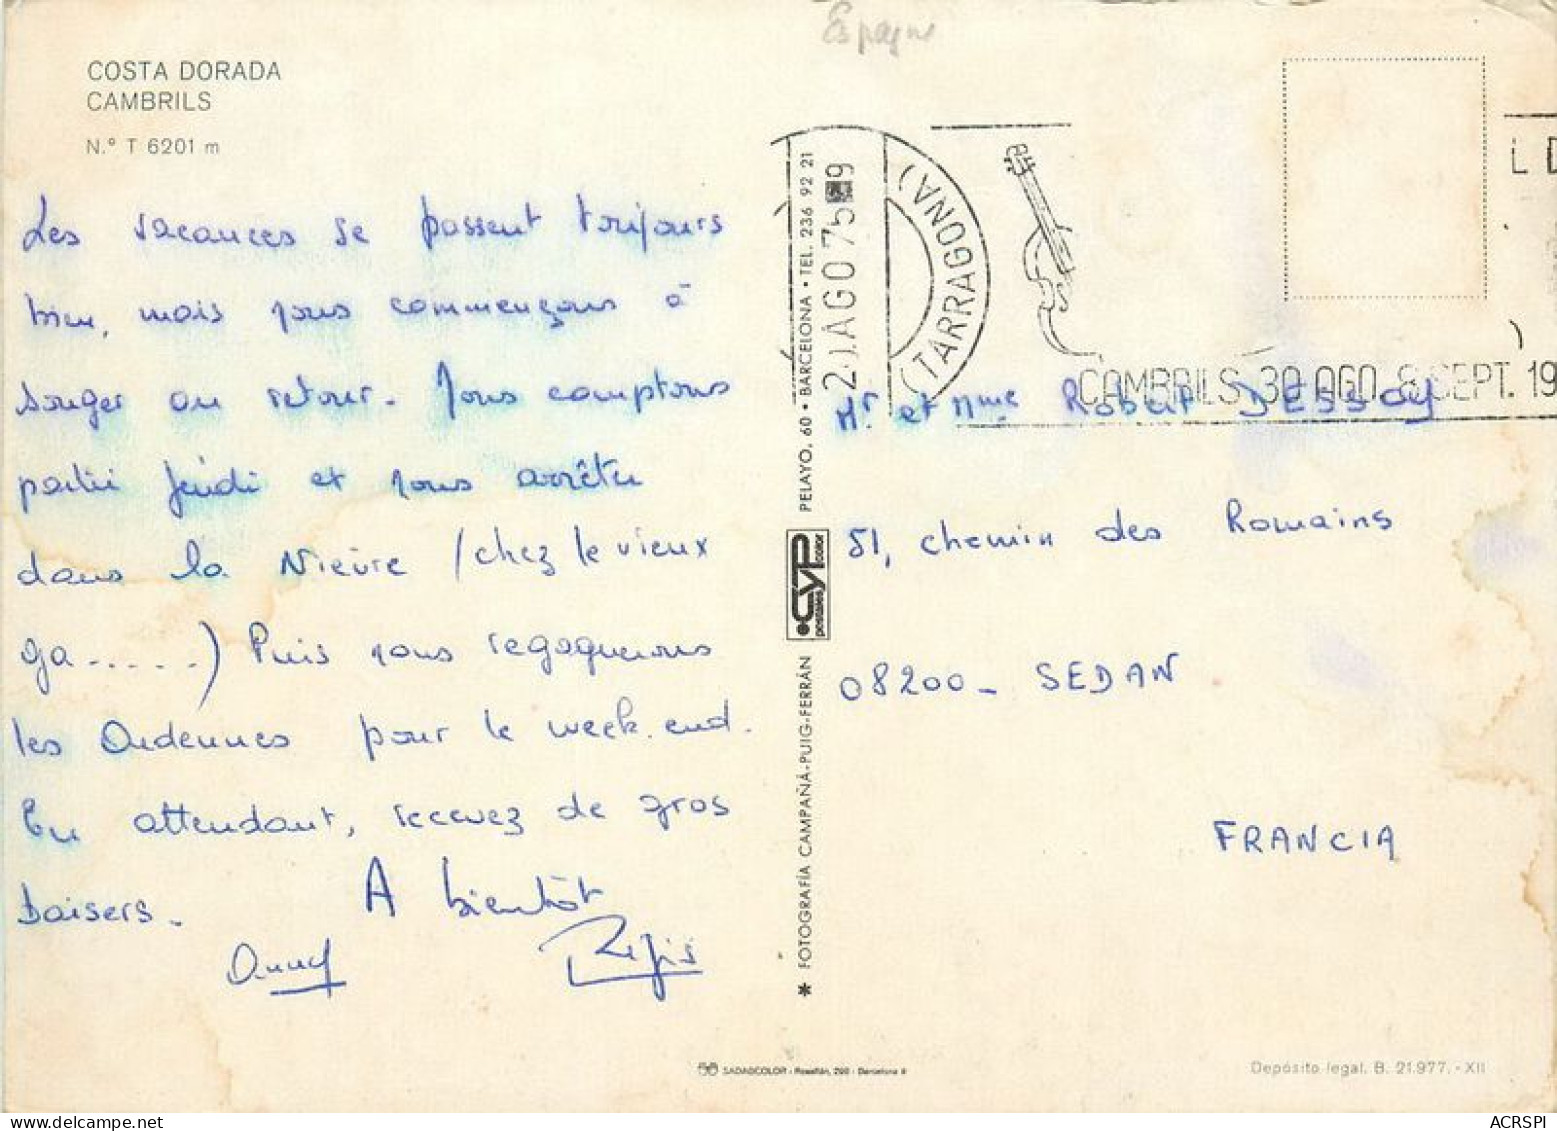 Espagne
COSTA DORADA
CAMBRILS
N.º T 6201 m
Les vacances se passent toujours
bien, mais nous commençons à
songer au retour. Nous comptons
partir jeudi et nous arrêter
dans la Nièvre (chez le vieux
ga.....) Puis nous regagnerons
les Ardennes pour le week.end.
En attendant, recevez de gros
baisers.
A bientôt
Anny Régis
* FOTOGRAFÍA CAMPAÑÁ-PUIG-FERRÁN
CYP
postales color
PELAYO, 60 • BARCELONA • TEL. 236 92 21
AGO 75
9
(TARRAGONA)
L D
CAMBRILS 30 AGO. 8 SEPT. 19
Mr et Mme Robert DESSOY
51, chemin des Romains
08200 - SEDAN
FRANCIA
SADAGCOLOR - Rosellón, 290 - Barcelona
Depósito legal. B. 21.977. - XII
ACRSPI